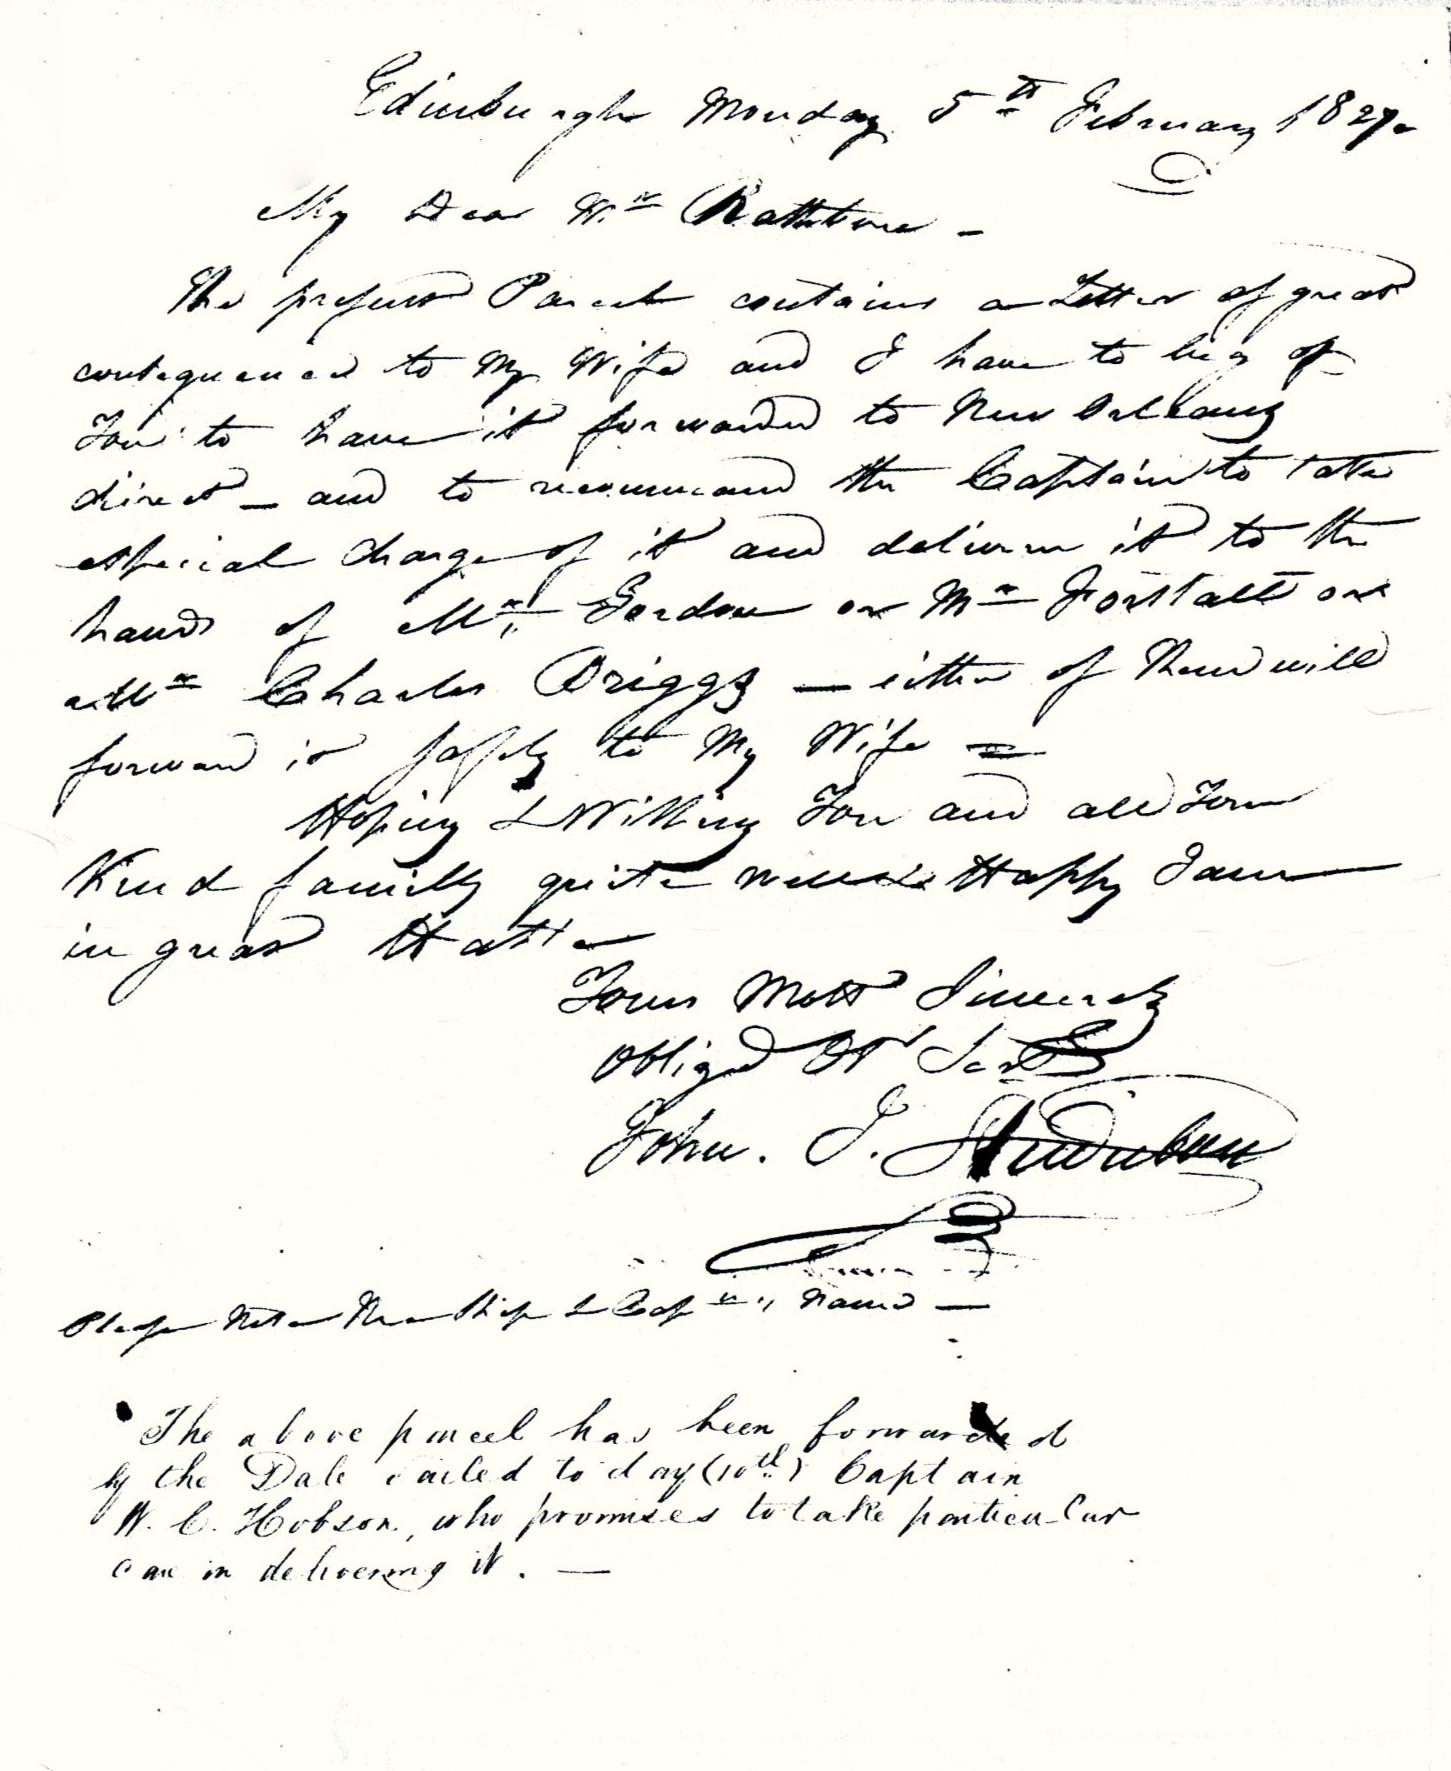 Edinburgh Monday 5th February 1827.
My Dear Wm Rathbone —
The present Parcel contains a Letter of great
consequence to My Wife and I have to beg of
You to have it forwarded to New Orleans
direct — and to recommand the Captain to take
especial charge of it and deliver it to the
hands of Mr. Gordon or Mr Forstall or
Mr Charles Briggs — either of them will
forward it safely to My Wife =
Hoping & Wishing You and all Your
Kind family quite well & Happy I am
in great Haste
Yours Most Sincerely
Obliged Ot Sert
John. J. Audubon
Please Note the Ship & Capns, Name —
The above parcel has been forwarded
by the Dale sailed to day (10th) Captain
W. C. Hobson, who promises to take particular
care in delivering it. —